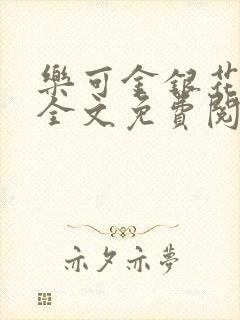 樂可金銀花
全文免費閱
亦夕亦夢